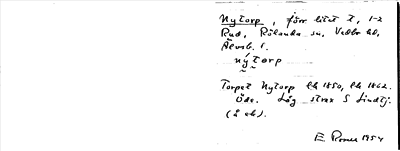 Nytorp, förr litet t, 1-2
Rud, Rölanda sn, Vedbo hd,
Älvsb. l.
nýtorp
Torpet Nytorp lh 1850, lh 1862.
Öde. Låg strax S Lindtj.
(2 ab).
E 1954